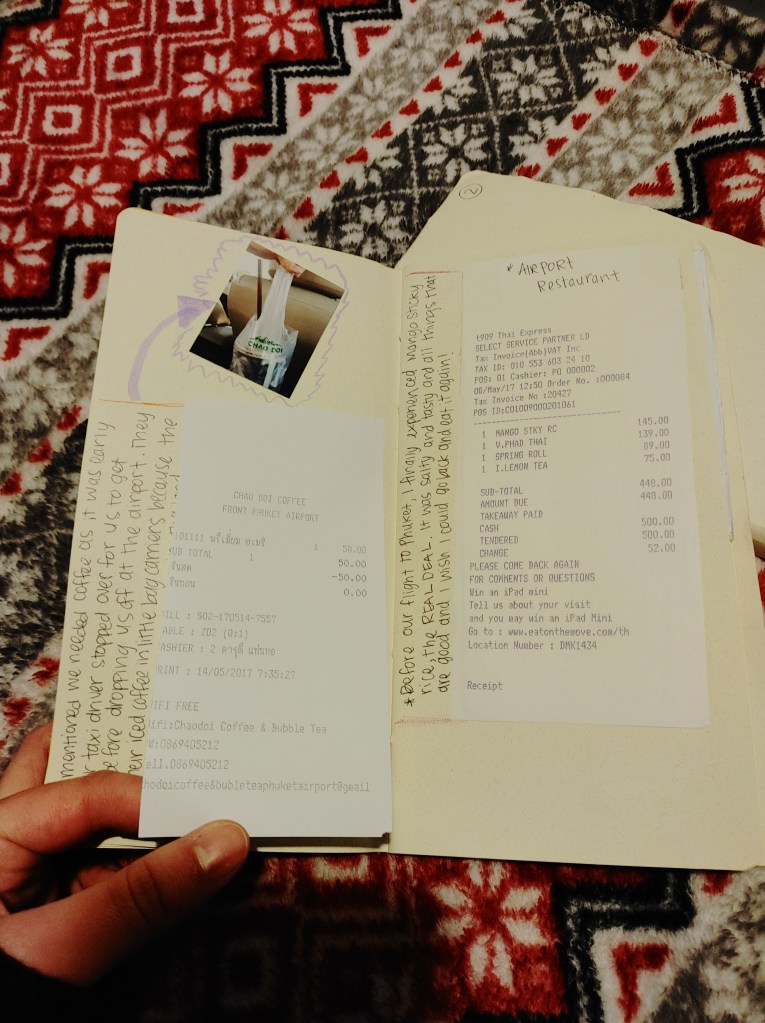 CHAO DOI
mentioned we needed coffee as it was early
taxi driver stopped over for us to get
before dropping us off at the airport. They
iced coffee in little bag carriers because the
CHAO DOI COFFEE
FRONT PHUKET AIRPORT
101111 พรีเมี่ยม อเมริ 1 50.00
SUB TOTAL 1 50.00
เงินสด -50.00
เงินทอน 0.00
BILL : 902-170514-7557
TABLE : 202 (Q:1)
CASHIER : 2
PRINT : 14/05/2017 7:35:27
WIFI FREE
Wifi:Chaodoi Coffee & Bubble Tea
PW:0869405212
Tell.0869405212
hodoicoffee&bubleteaphuketairport@gmail
2
* AIRPORT
Restaurant
*Before our flight to Phuket, I finally experienced mango sticky
rice, the REAL DEAL. It was salty and tasty and all things that
are good and I wish I could go back and eat it again!
t909 Thai Express
SELECT SERVICE PARTNER LD
Tax Invoice(Abb)VAT Inc
TAX ID: 010 553 603 24 10
POS: 01 Cashier: PO 000002
08/May/17 12:50 Order No. :000084
Tax Invoice No :20427
POS ID:C01009000201061
1 MANGO STKY RC 145.00
1 V.PHAD THAI 139.00
1 SPRING ROLL 89.00
1 I.LEMON TEA 75.00
SUB-TOTAL 448.00
AMOUNT DUE 448.00
TAKEAWAY PAID
CASH 500.00
TENDERED 500.00
CHANGE 52.00
PLEASE COME BACK AGAIN
FOR COMMENTS OR QUESTIONS
Win an iPad mini
Tell us about your visit
and you may win an iPad Mini
Go to : www.eatonthemove.com/th
Location Number : DMK1434
Receipt